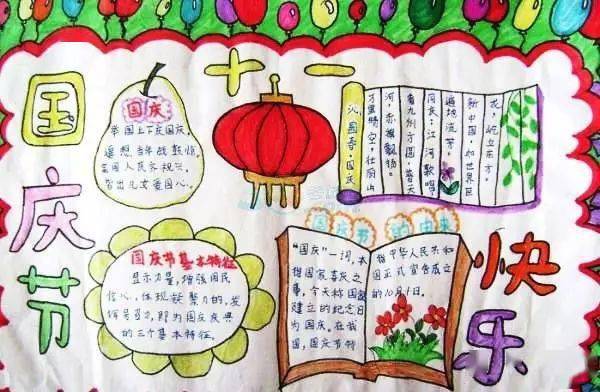 国庆节
十一
国庆
举国上下庆国庆,
遥想当年战
全国人民齐
儿女爱国心。
沁园春·国庆
万里晴空,壮丽山
河,赤旗飘扬。
看九州方圆,普天
同庆,江河歌唱,
遍地流芳。
新中国,如世界巨
龙,屹立东方。
国庆节基本特征
显示力量,增强国民
信心,体现凝聚力的,发
挥号召力,即为国庆庆典
的三个基本特征。
国庆节 的由来
“国庆”一词,本
指国家喜庆之
事,今天称国家
建立的纪念日
为国庆。在我
国,国庆节特
指中华人民共和
国正式宣告成立
的10月1日。
快乐